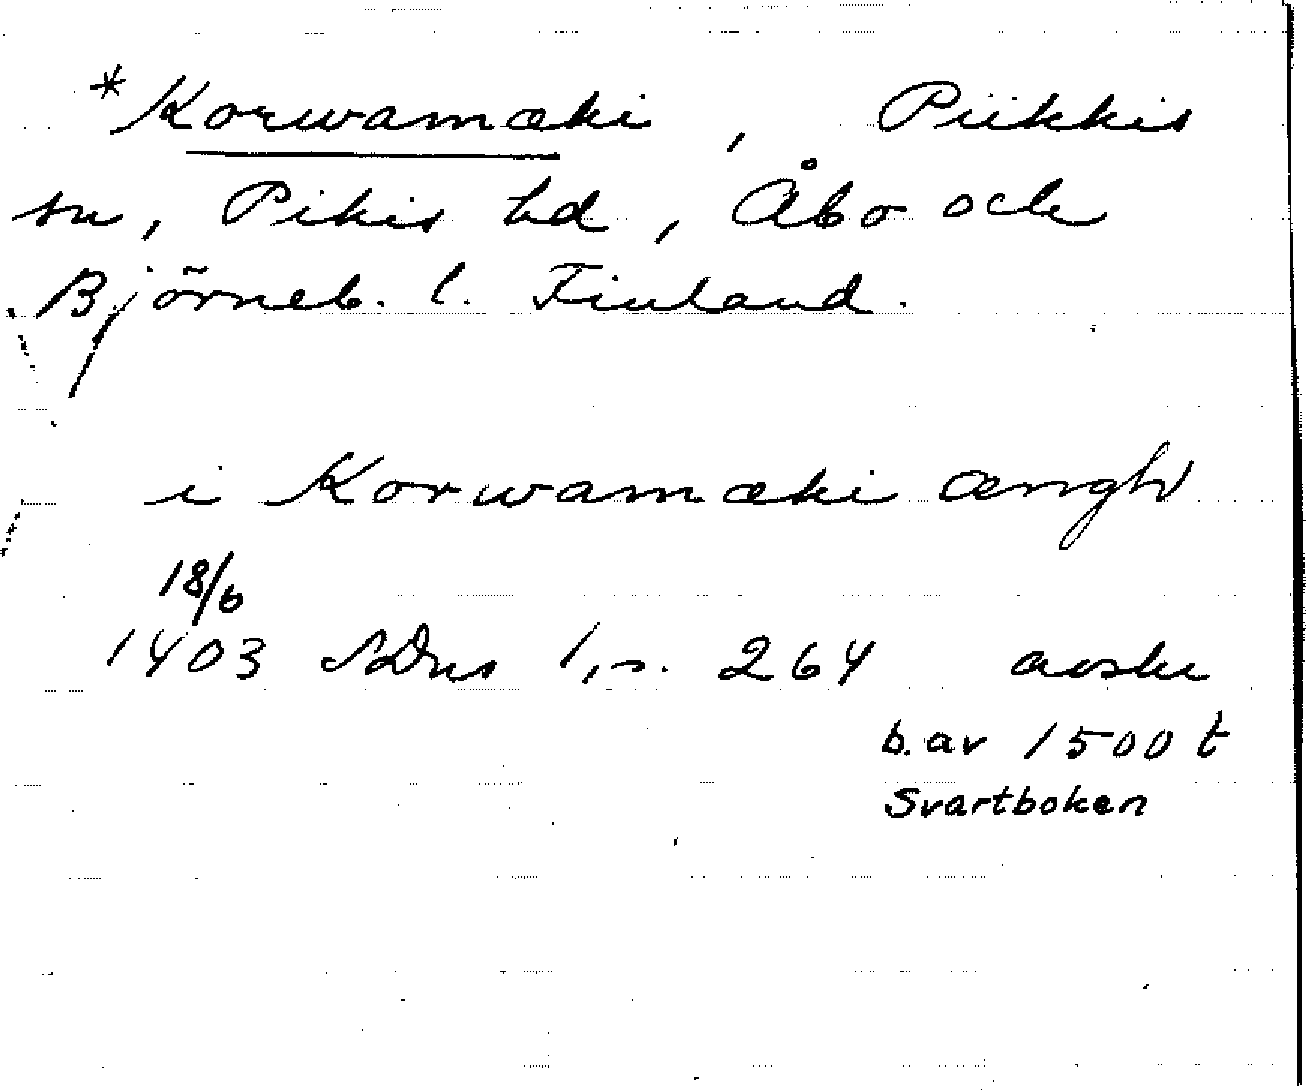 *Korwamæki, Piikkis
sn, Pikis hd, Åbo och
Björneb. l. Finland.
i Korwamæki ængh
18/6
1403 SDns 1, s. 264 avskr
b. av 1500 t
Svartboken